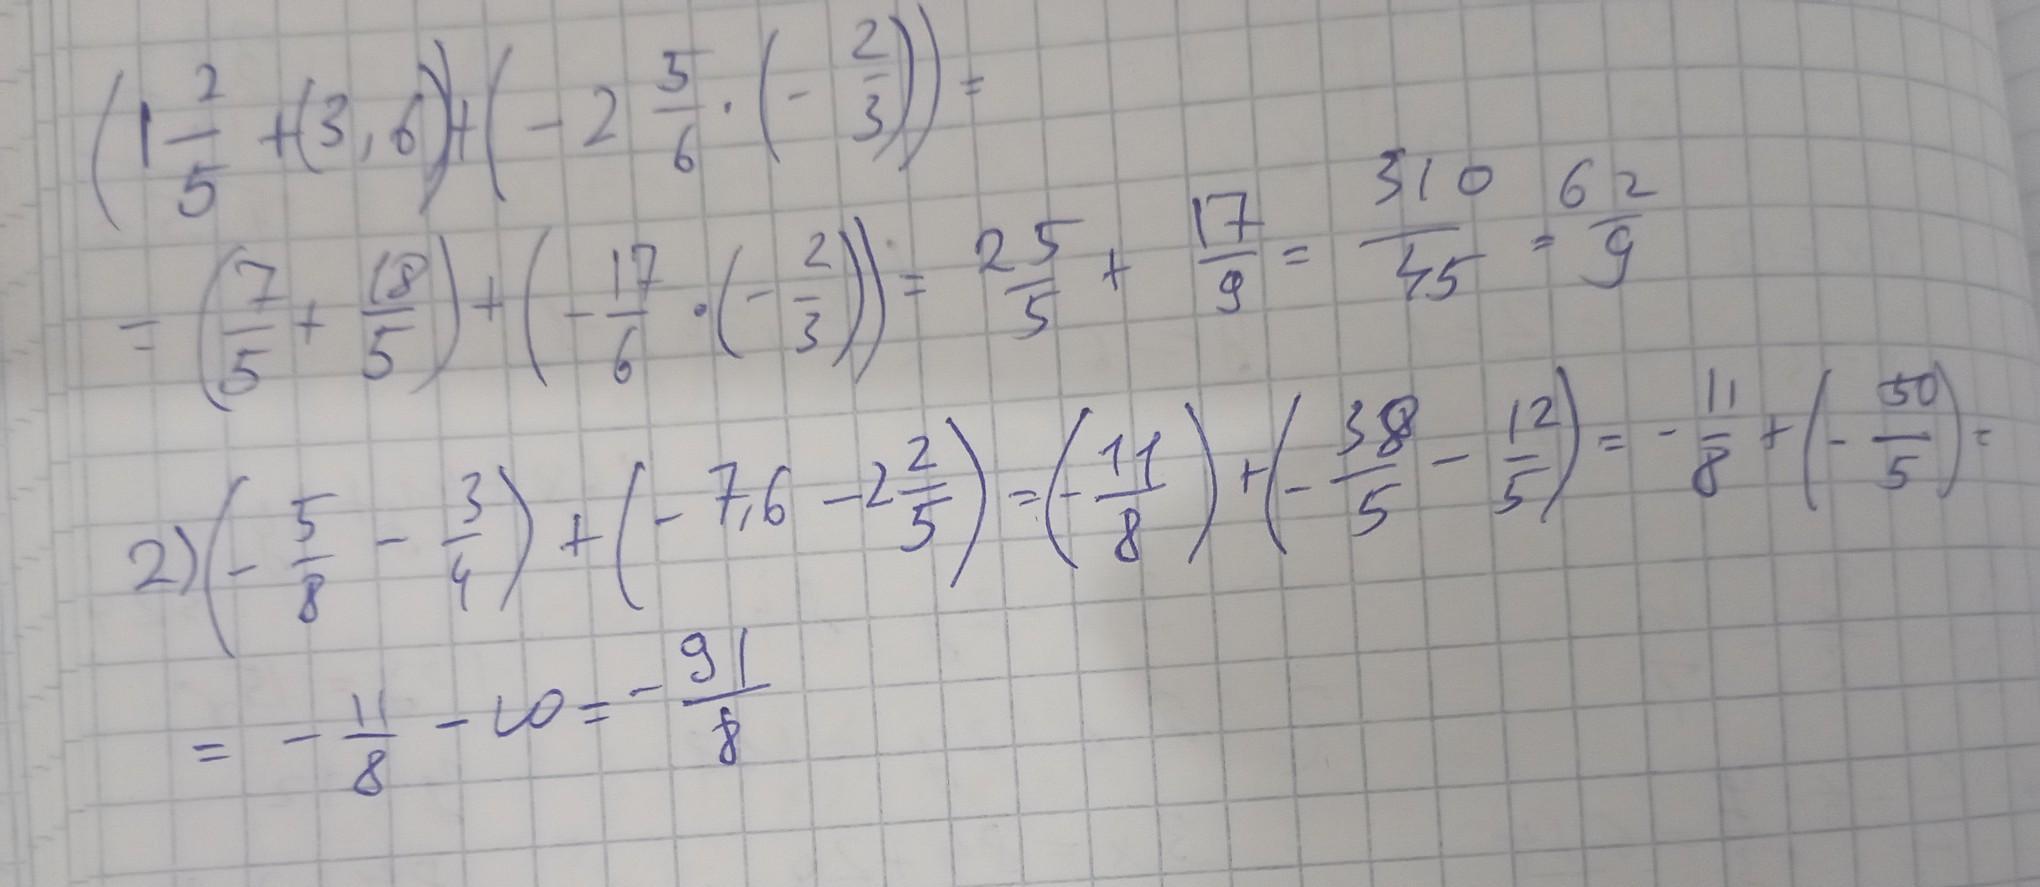 (1 2/5 + (3,6)) + (- 2 5/6 · (- 2/3)) =
= (7/5 + 18/5) + (- 17/6 · (- 2/3)) = 25/5 + 17/9 = 310/45 = 62/9
2) (- 5/8 - 3/4) + (- 7,6 - 2 2/5) = (- 11/8) + (- 38/5 - 12/5) = - 11/8 + (- 50/5) =
= - 11/8 - 10 = - 91/8